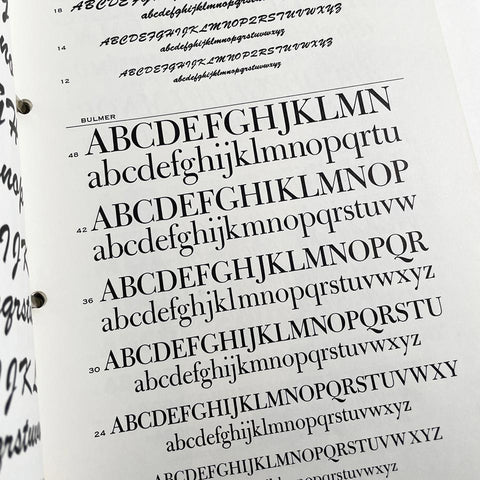 18 ABCDEFGHIJKLMNOPQRSTUVWXYZ
abcdefghijklmnopqrstuvwxyz
14 ABCDEFGHIJKLMNOPQRSTUVWXYZ
abcdefghijklmnopqrstuvwxyz
12 ABCDEFGHIJKLMNOPQRSTUVWXYZ
abcdefghijklmnopqrstuvwxyz
BULMER
48 ABCDEFGHJKLMN
abcdefghijklmnopqrtu
42 ABCDEFGHIKLMNOP
abcdefghijklmnopqrstuvw
36 ABCDEFGHIJKLMNOPQR
abcdefghijklmnopqrstuvwxyz
30 ABCDEFGHIJKLMNOPQRSTU
abcdefghijklmnopqrstuvwxyz
24 ABCDEFGHIJKLMNOPQRSTUVWXY
abcdefghijklmnopqrstuvwxyz
ABCDEFGHIJKLMNOPQRSTUVWXYZ